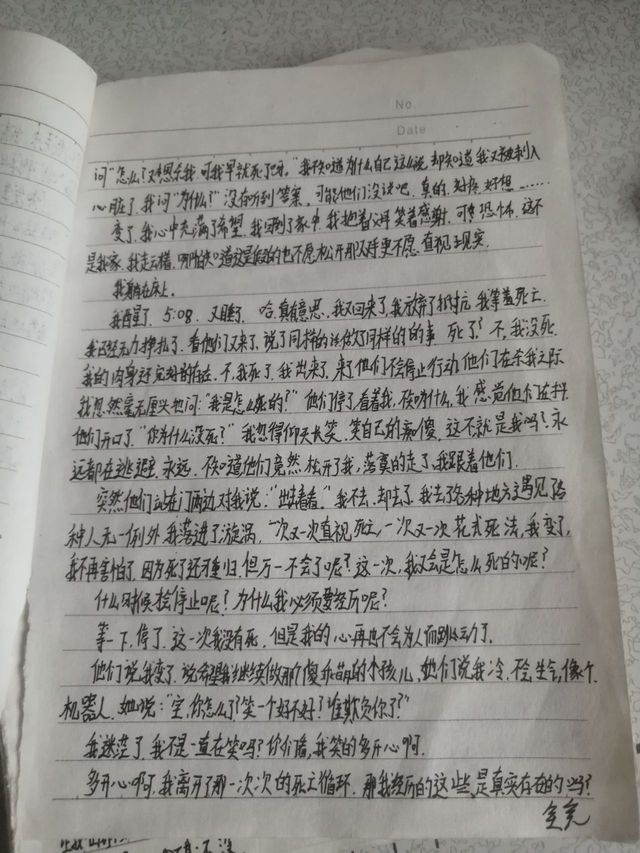 No.
Date
问"怎么?又想杀我,可我早就死了呀。"我不知道为什么自己这么说,却知道我又被刺入
心脏了,我问"为什么?"没有听到答案,可能他们没说吧,真的,好疼,好想……
变了,我心中充满了希望,我回到了家中,我抱着父母笑着感谢,可多恐怖,这不
是我家,我走云楼,哪怕知道这是假的也不愿松开那双手更不愿直视现实.
我躺在床上。
我醒了,5:08,又睡了,哈,真有意思,我又回来了,我放弃了抵抗,我等着死亡.
我已经无力挣扎了,看他们又来了,说了同样的话做了同样的的事,死了?不,我没死.
我的肉身还完好的存在,不,我死了,我出来了,来了他们不会停止行动,他们在杀我之际
我忽然毫无厘头地问:"我是怎么死的?"他们停了,看着我,不知为什么,我感觉他们在抖.
他们开口了,"你为什么没死?"我忽得仰天长笑,笑自己的痴傻,这不就是我吗?永
远都在逃避,永远,不知道他们竟然松开了我,落寞的走了,我跟着他们.
突然他们站在门两边对我说:"出去看看。"我不去,却去了,我去了各种地方遇见了各
种人无一例外,我落进了漩涡,一次又一次直视死亡,一次又一次花式死法,我变了,
我不再害怕了,因为死了还可重归,但万一不会了呢?这一次,我又会是怎么死的呢?
什么时候才会停止呢?为什么我必须要经历呢?
等一下,停了,这一次我没有死,但是我的心再也不会为人而跳动了.
他们说我变了,说希望我继续做那个傻乖萌的小孩儿,她们说我冷,不会生气,像个
机器人,她说:"空,你怎么了?笑一个好不好?谁欺负你了?"
我迷茫了,我不是一直在笑吗?你们瞧,我笑的多开心啊.
多开心啊,我离开了那一次次的死亡循环,那我经历的这些,是真实存在的吗?
全完